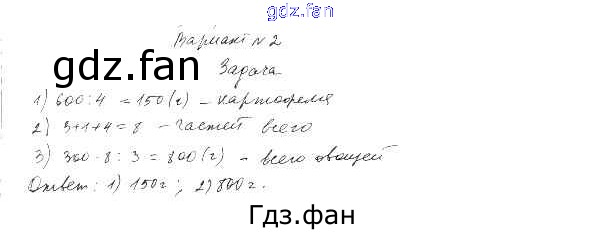 gdz.fan
Вариант №2
gdz.fan
Задача
1) 600:4 =150(г) – картофеля
2) 3+1+4=8 – частей всего
3) 300·8:3=800(г) – всего овощей
Ответ: 1) 150г; 2) 800г.
Гдз.фан